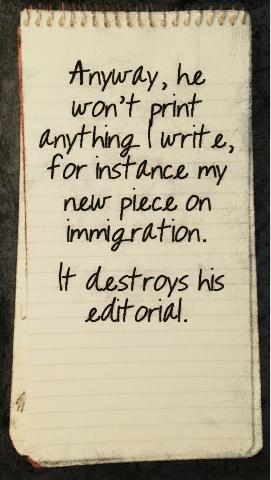 Anyway, he
won't print
anything I write,
for instance my
new piece on
immigration.
It destroys his
editorial.